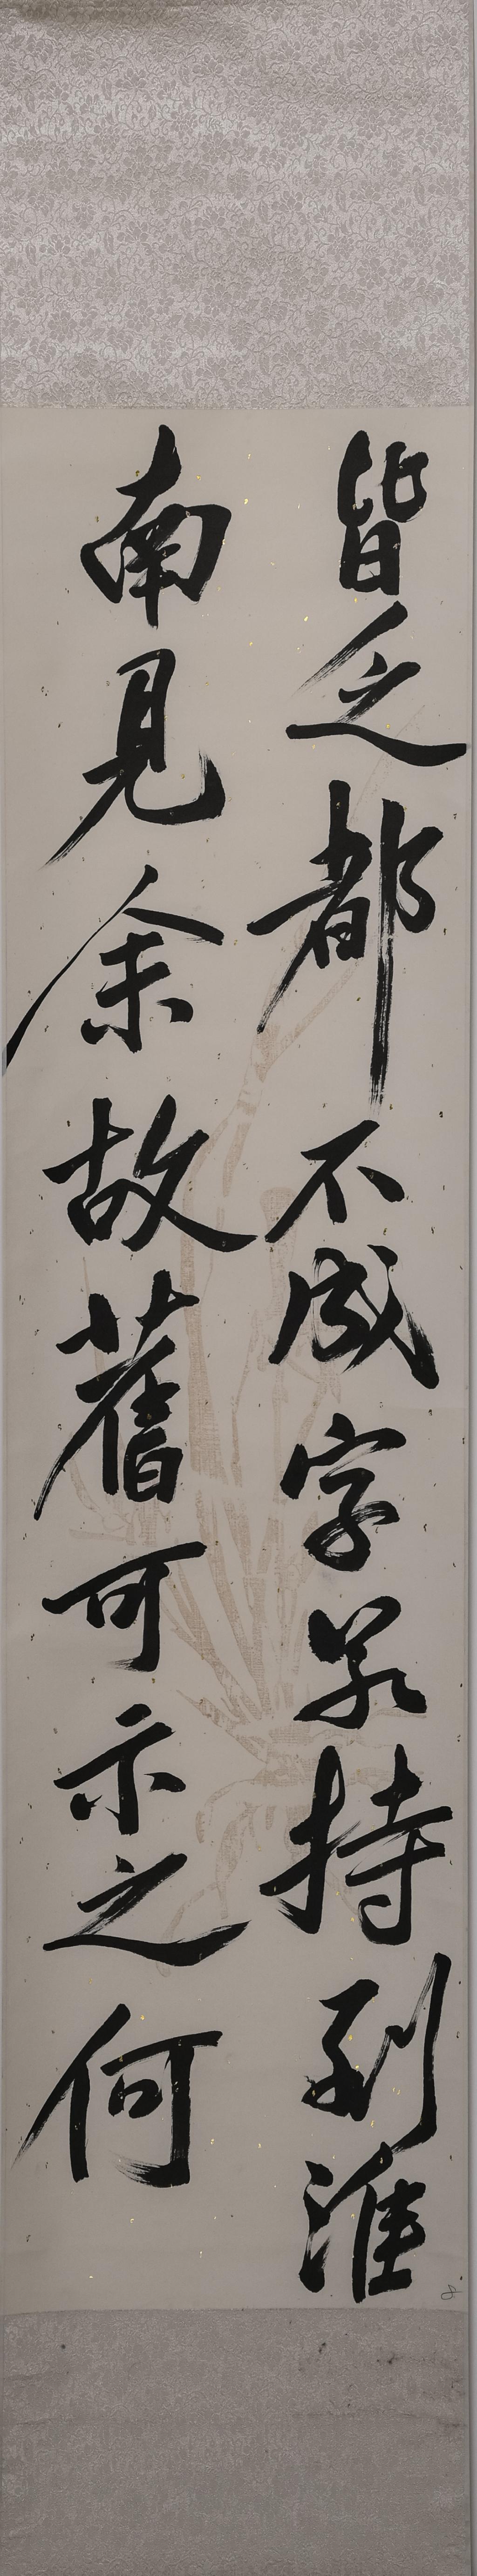 皆乏都不成字若持到淮
南見余故舊可示之何